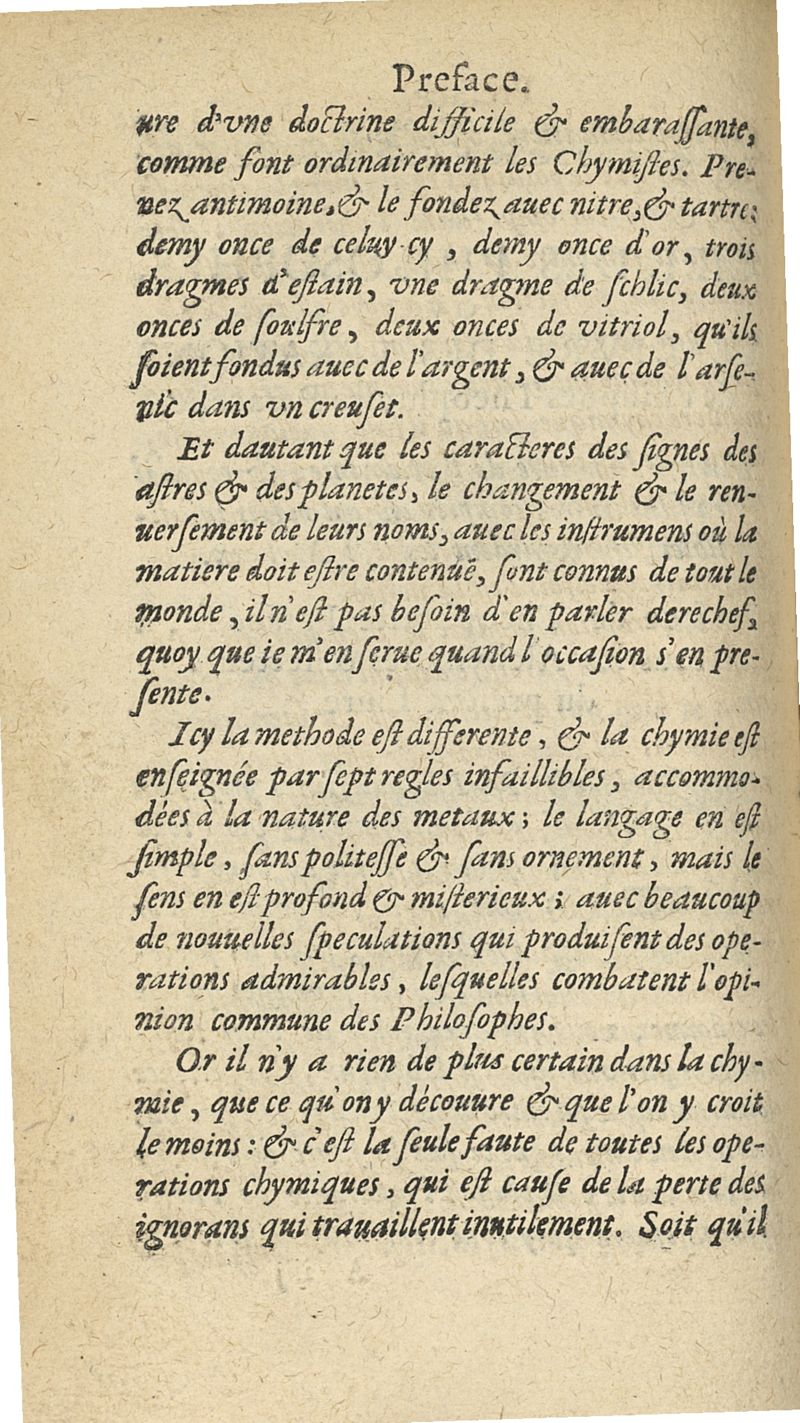 Preface.
ure d'vne doctrine difficile & embaraſſante,
comme font ordinairement les Chymiſtes. Pre-
nez antimoine, & le fondez auec nitre, & tartre;
demy once de celuy-cy, demy once d'or, trois
dragmes d'eſtain, vne dragme de ſchlic, deux
onces de ſoulfre, deux onces de vitriol, qu'ils
ſoient fondus auec de l'argent, & auec de l'arſe-
nic dans vn creuſet.
Et dautant que les caracteres des ſignes des
aſtres & des planetes, le changement & le ren-
uerſement de leurs noms, auec les inſtrumens où la
matiere doit eſtre contenuë, ſont connus de tout le
monde, il n'eſt pas beſoin d'en parler derechef,
quoy que ie m'en ſerue quand l'occaſion s'en pre-
ſente.
Icy la methode eſt differente, & la chymie eſt
enſeignée par ſept regles infaillibles, accommo-
dées à la nature des metaux; le langage en eſt
ſimple, ſans politeſſe & ſans ornement, mais le
ſens en eſt profond & miſterieux; auec beaucoup
de nouuelles ſpeculations qui produiſent des ope-
rations admirables, leſquelles combatent l'opi-
nion commune des Philoſophes.
Or il n'y a rien de plus certain dans la chy-
mie, que ce qu'on y découure & que l'on y croit
le moins: & c'eſt la ſeule faute de toutes les ope-
rations chymiques, qui eſt cauſe de la perte des
ignorans qui trauaillent inutilement. Soit qu'il